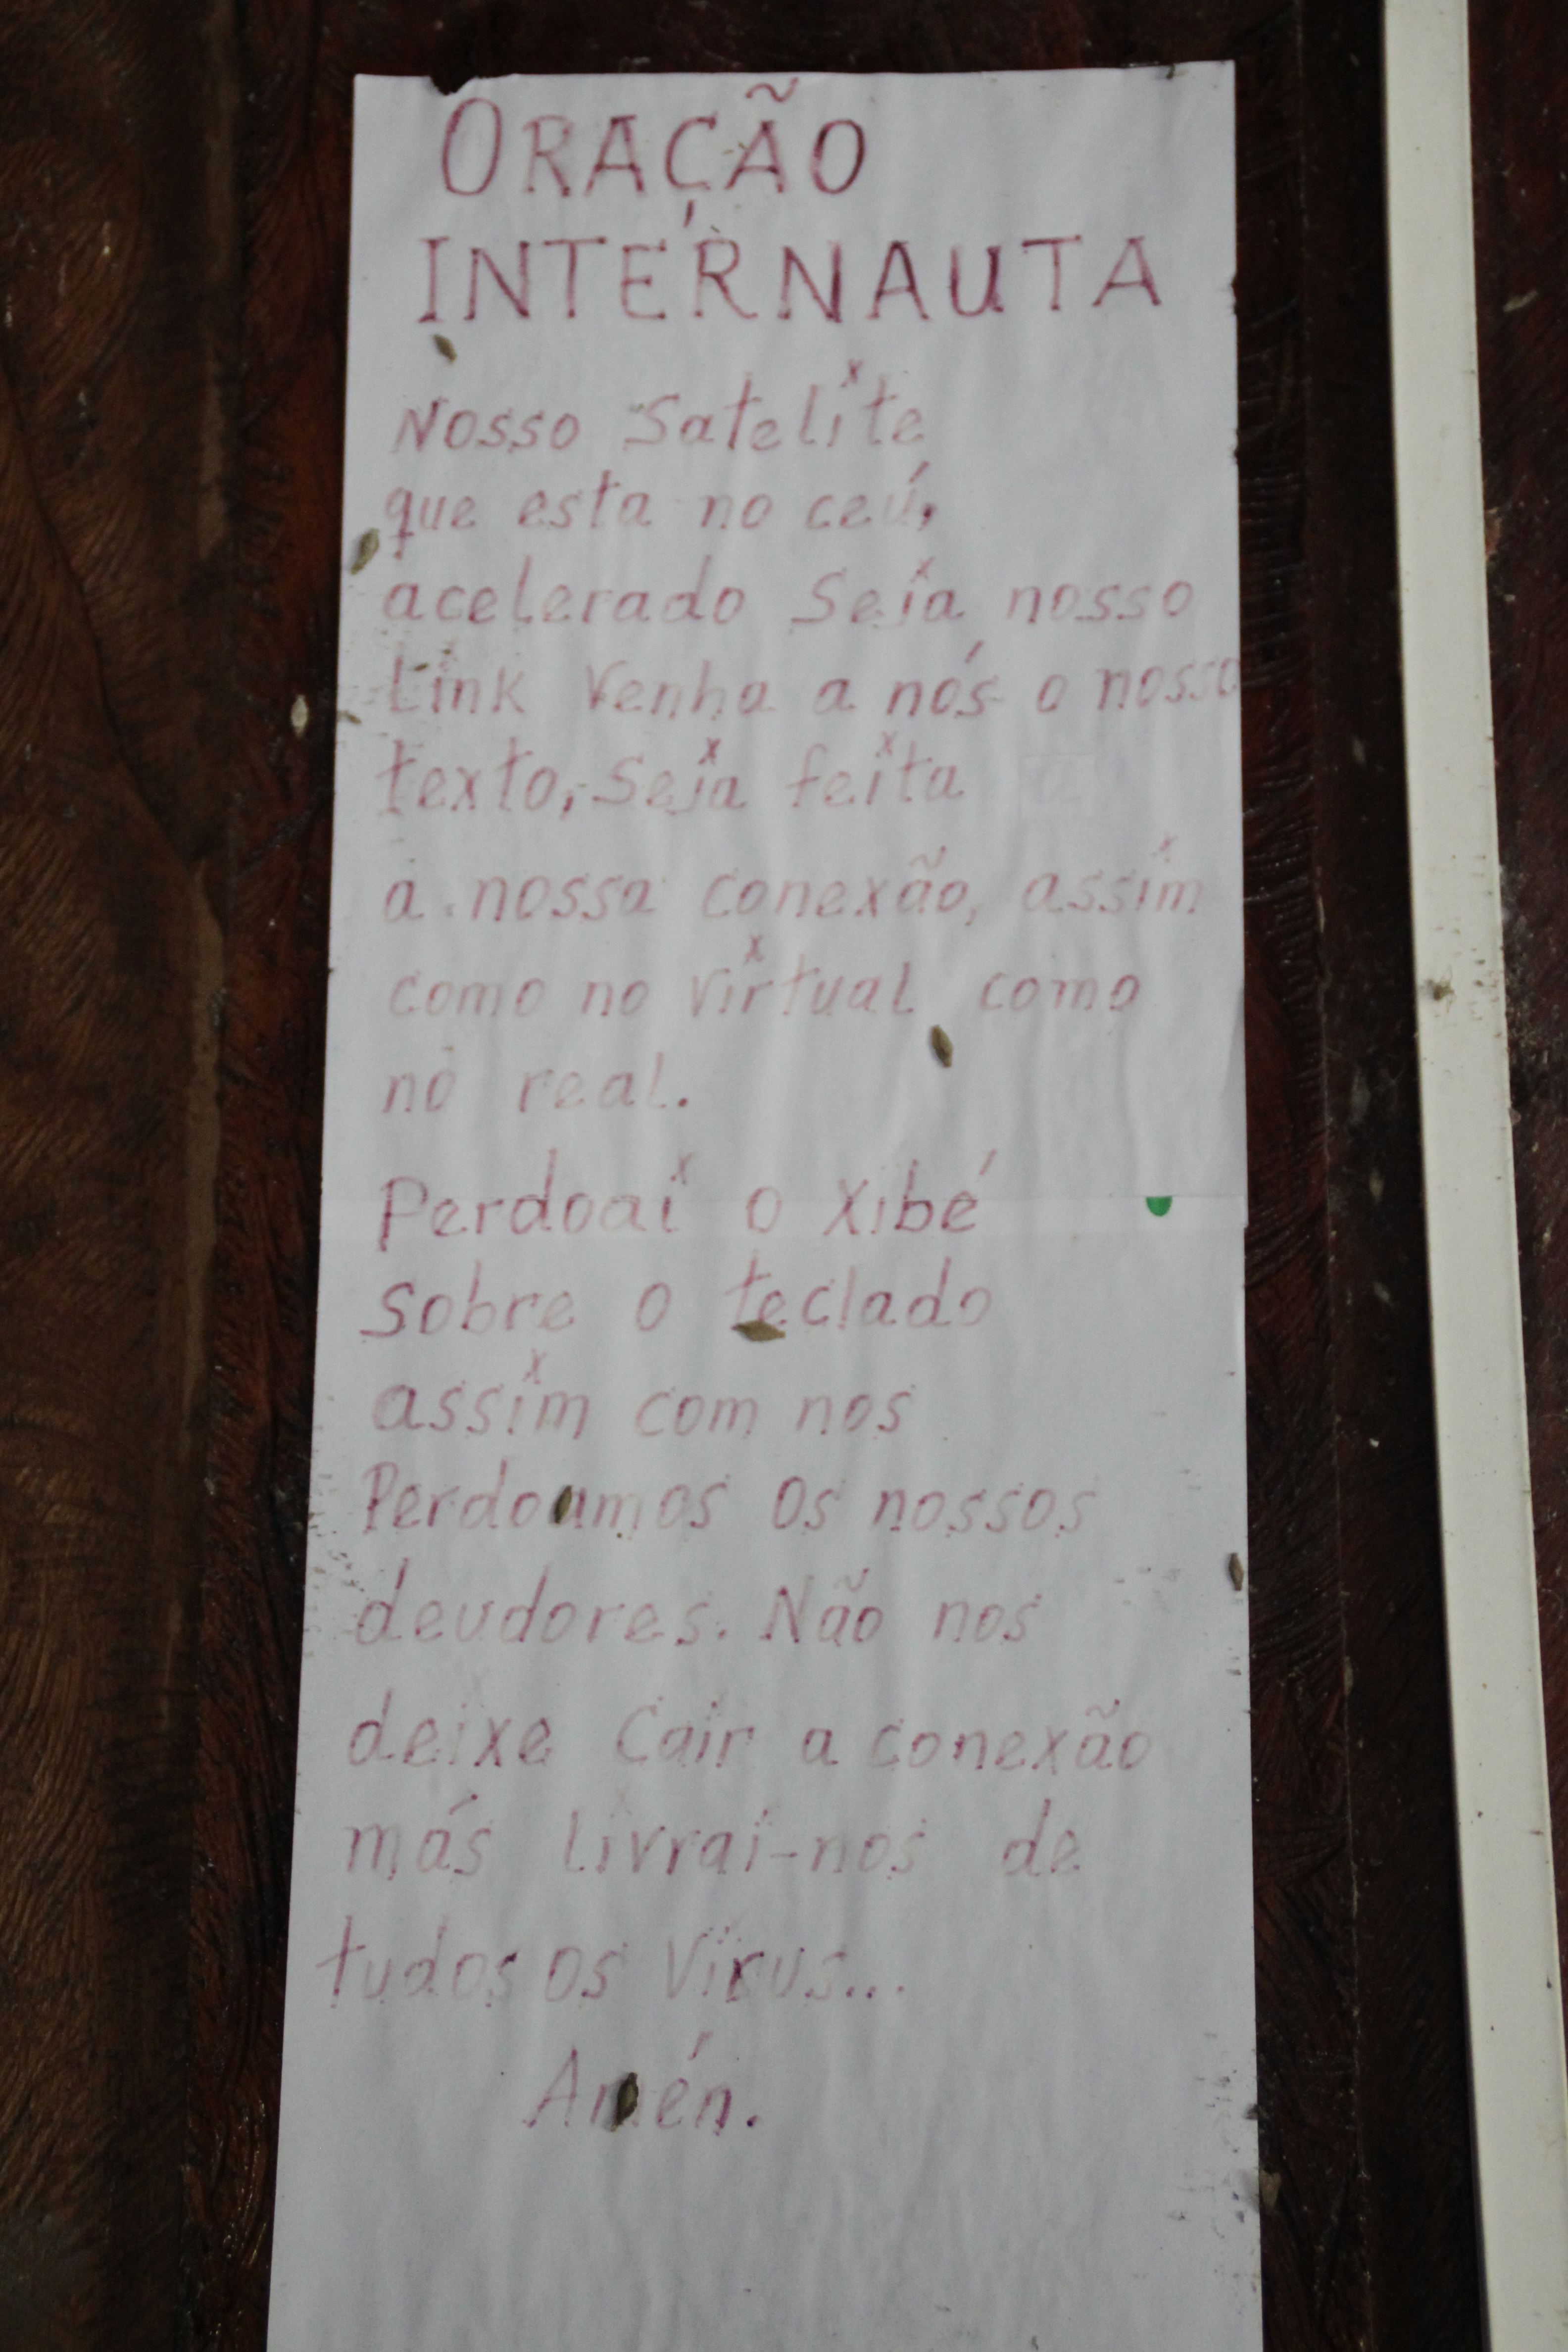 ORAÇÃO
INTERNAUTA
Nosso Satelite
que esta no ceú,
acelerado Seja nosso
Link Venha a nós o nosso
texto, Seja feita
a nossa conexão, assim
como no virtual como
no real.
Perdoai o Xibé
sobre o teclado
assim com nos
Perdoamos os nossos
deudores. Não nos
deixe Cair a conexão
más livrai-nos de
tudos os Virus...
Amén.